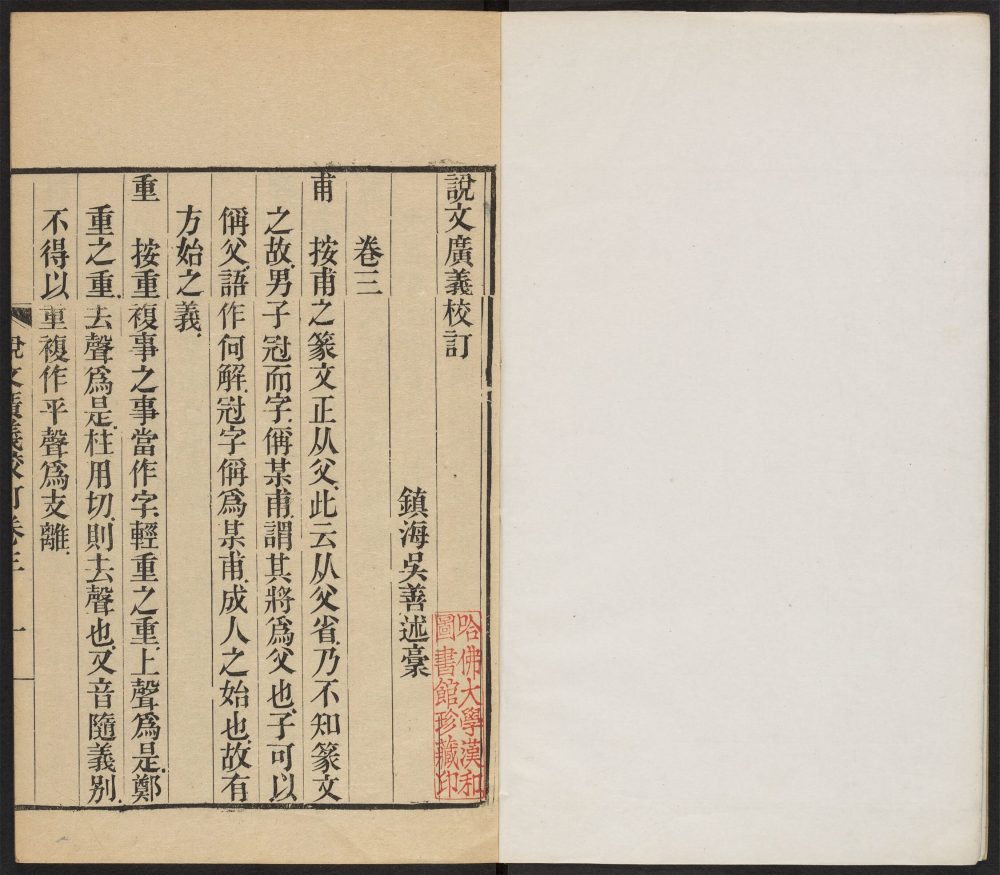 說文廣義校訂
鎮海吳善述稾
卷三
甫 按甫之篆文正从父此云从父省乃不知篆文
之故男子冠而字偁某甫謂其將爲父也子可以
偁父語作何解冠字偁爲某甫成人之始也故有
方始之義
重 按重複事之事當作字輕重之重上聲爲是鄭
重之重去聲爲是柱用切則去聲也又音隨義別
不得以重複作平聲爲支離
說文廣義校訂卷三 一
哈佛大學漢和
圖書館珍藏印